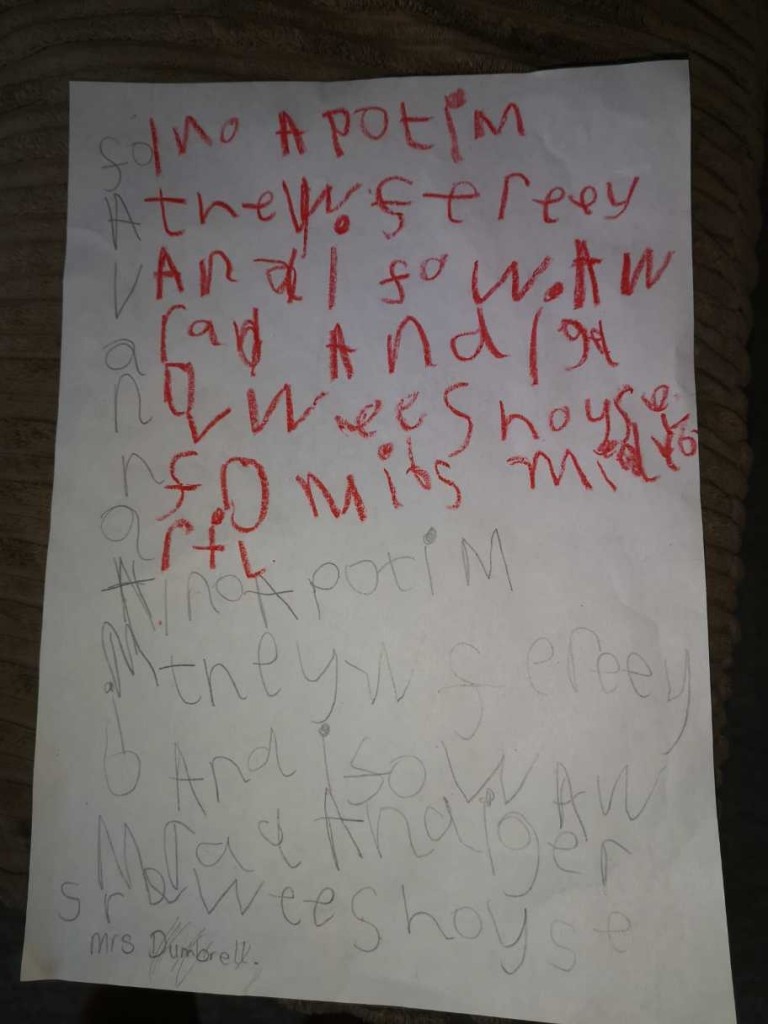 fo I no A potim
A they w. f ereey
V And I so w. Aw
a rad And I gd
n weeshoyse
n f.O m its mid
a r+L
A I no A potiM
.M they w f ereey
b And i so w Aw
M rad And iger
srb weeshoyse
mrs Dumbrell.